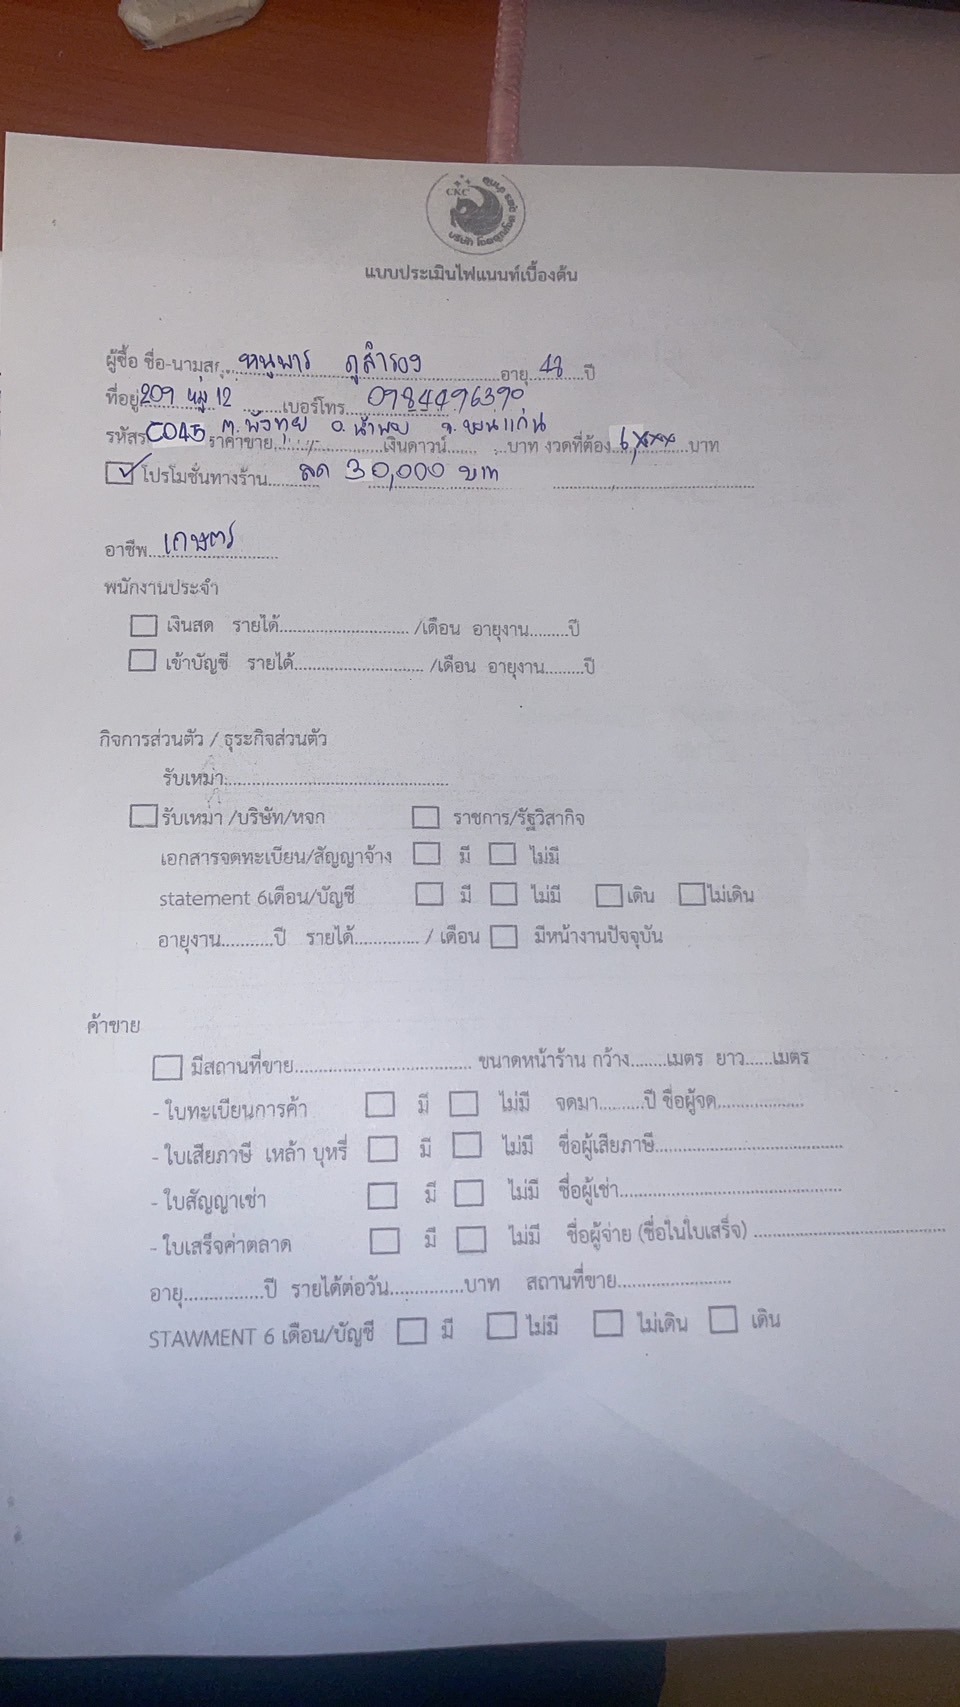 CKC
แบบประเมินไฟแนนท์เบื้องต้น
ผู้ซื้อ ชื่อ-นามสกุ..หนูพาร ภูสำรอง.......อายุ..48.....ปี
ที่อยู่ 209 หมู่ 12 ........เบอร์โทร...0984496390
ต.พังทุย อ.น้ำพอง จ.ขอนแก่น
รหัสร C045 ราคาขาย..................เงินดาวน์...... ...บาท งวดที่ต้อง..6,xxx...บาท
โปรโมชั่นทางร้าน..........ลด 30,000 บาท
อาชีพ...เกษตร
พนักงานประจำ
เงินสด รายได้............................ /เดือน อายุงาน.........ปี
เข้าบัญชี รายได้............................ /เดือน อายุงาน.........ปี
กิจการส่วนตัว / ธุระกิจส่วนตัว
รับเหมา................................................
รับเหมา /บริษัท/หจก ราชการ/รัฐวิสากิจ
เอกสารจดทะเบียน/สัญญาจ้าง มี ไม่มี
statement 6เดือน/บัญชี มี ไม่มี เดิน ไม่เดิน
อายุงาน...........ปี รายได้.............. / เดือน มีหน้างานปัจจุบัน
ค้าขาย
มีสถานที่ขาย...................................... ขนาดหน้าร้าน กว้าง.......เมตร ยาว......เมตร
- ใบทะเบียนการค้า มี ไม่มี จดมา..........ปี ชื่อผู้จด...................
- ใบเสียภาษี เหล้า บุหรี่ มี ไม่มี ชื่อผู้เสียภาษี.........................................
- ใบสัญญาเช่า มี ไม่มี ชื่อผู้เช่า................................................
- ใบเสร็จค่าตลาด มี ไม่มี ชื่อผู้จ่าย (ชื่อในใบเสร็จ) ..........................................
อายุ.................ปี รายได้ต่อวัน................บาท สถานที่ขาย.........................
STAWMENT 6 เดือน/บัญชี มี ไม่มี ไม่เดิน เดิน